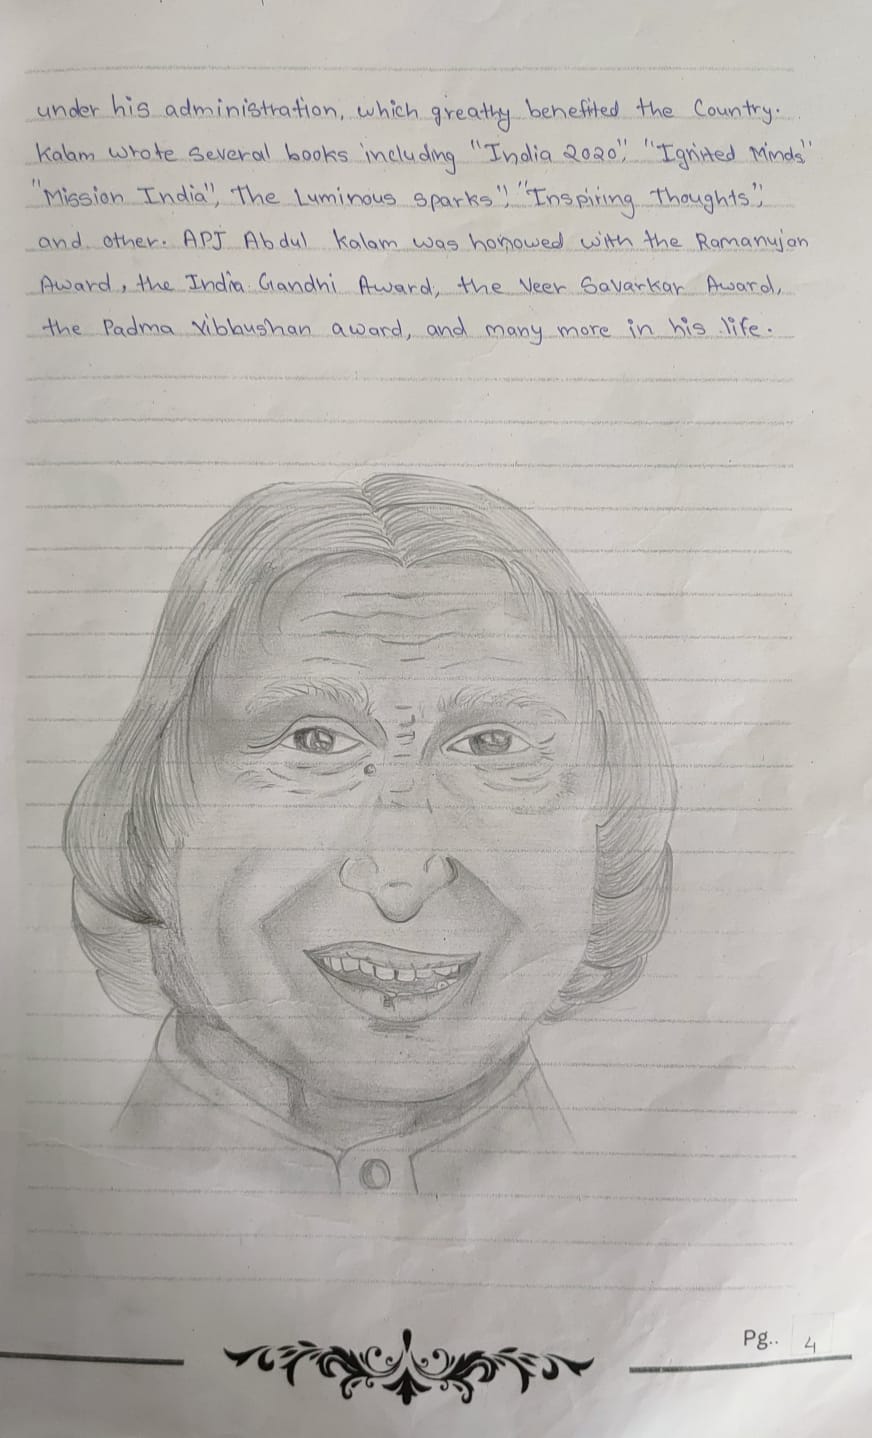 under his administration, which greathy benefited the Country.
Kalam wrote several books including "India 2020", "Ignited Minds"
"Mission India", The Luminous sparks", "Inspiring Thoughts",
and other. APJ Abdul Kalam was honowed with the Ramanujan
Award, the India Gandhi Award, the Veer Savarkar Award,
the Padma Vibhushan award, and many more in his life.
Pg.. 4